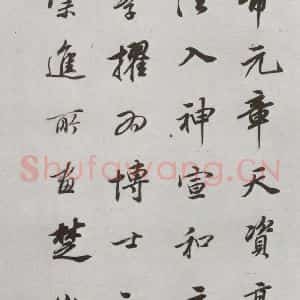 芾元章天資高
法入神宣和立
學擢為博士
進所畫楚
Shufawang.CN